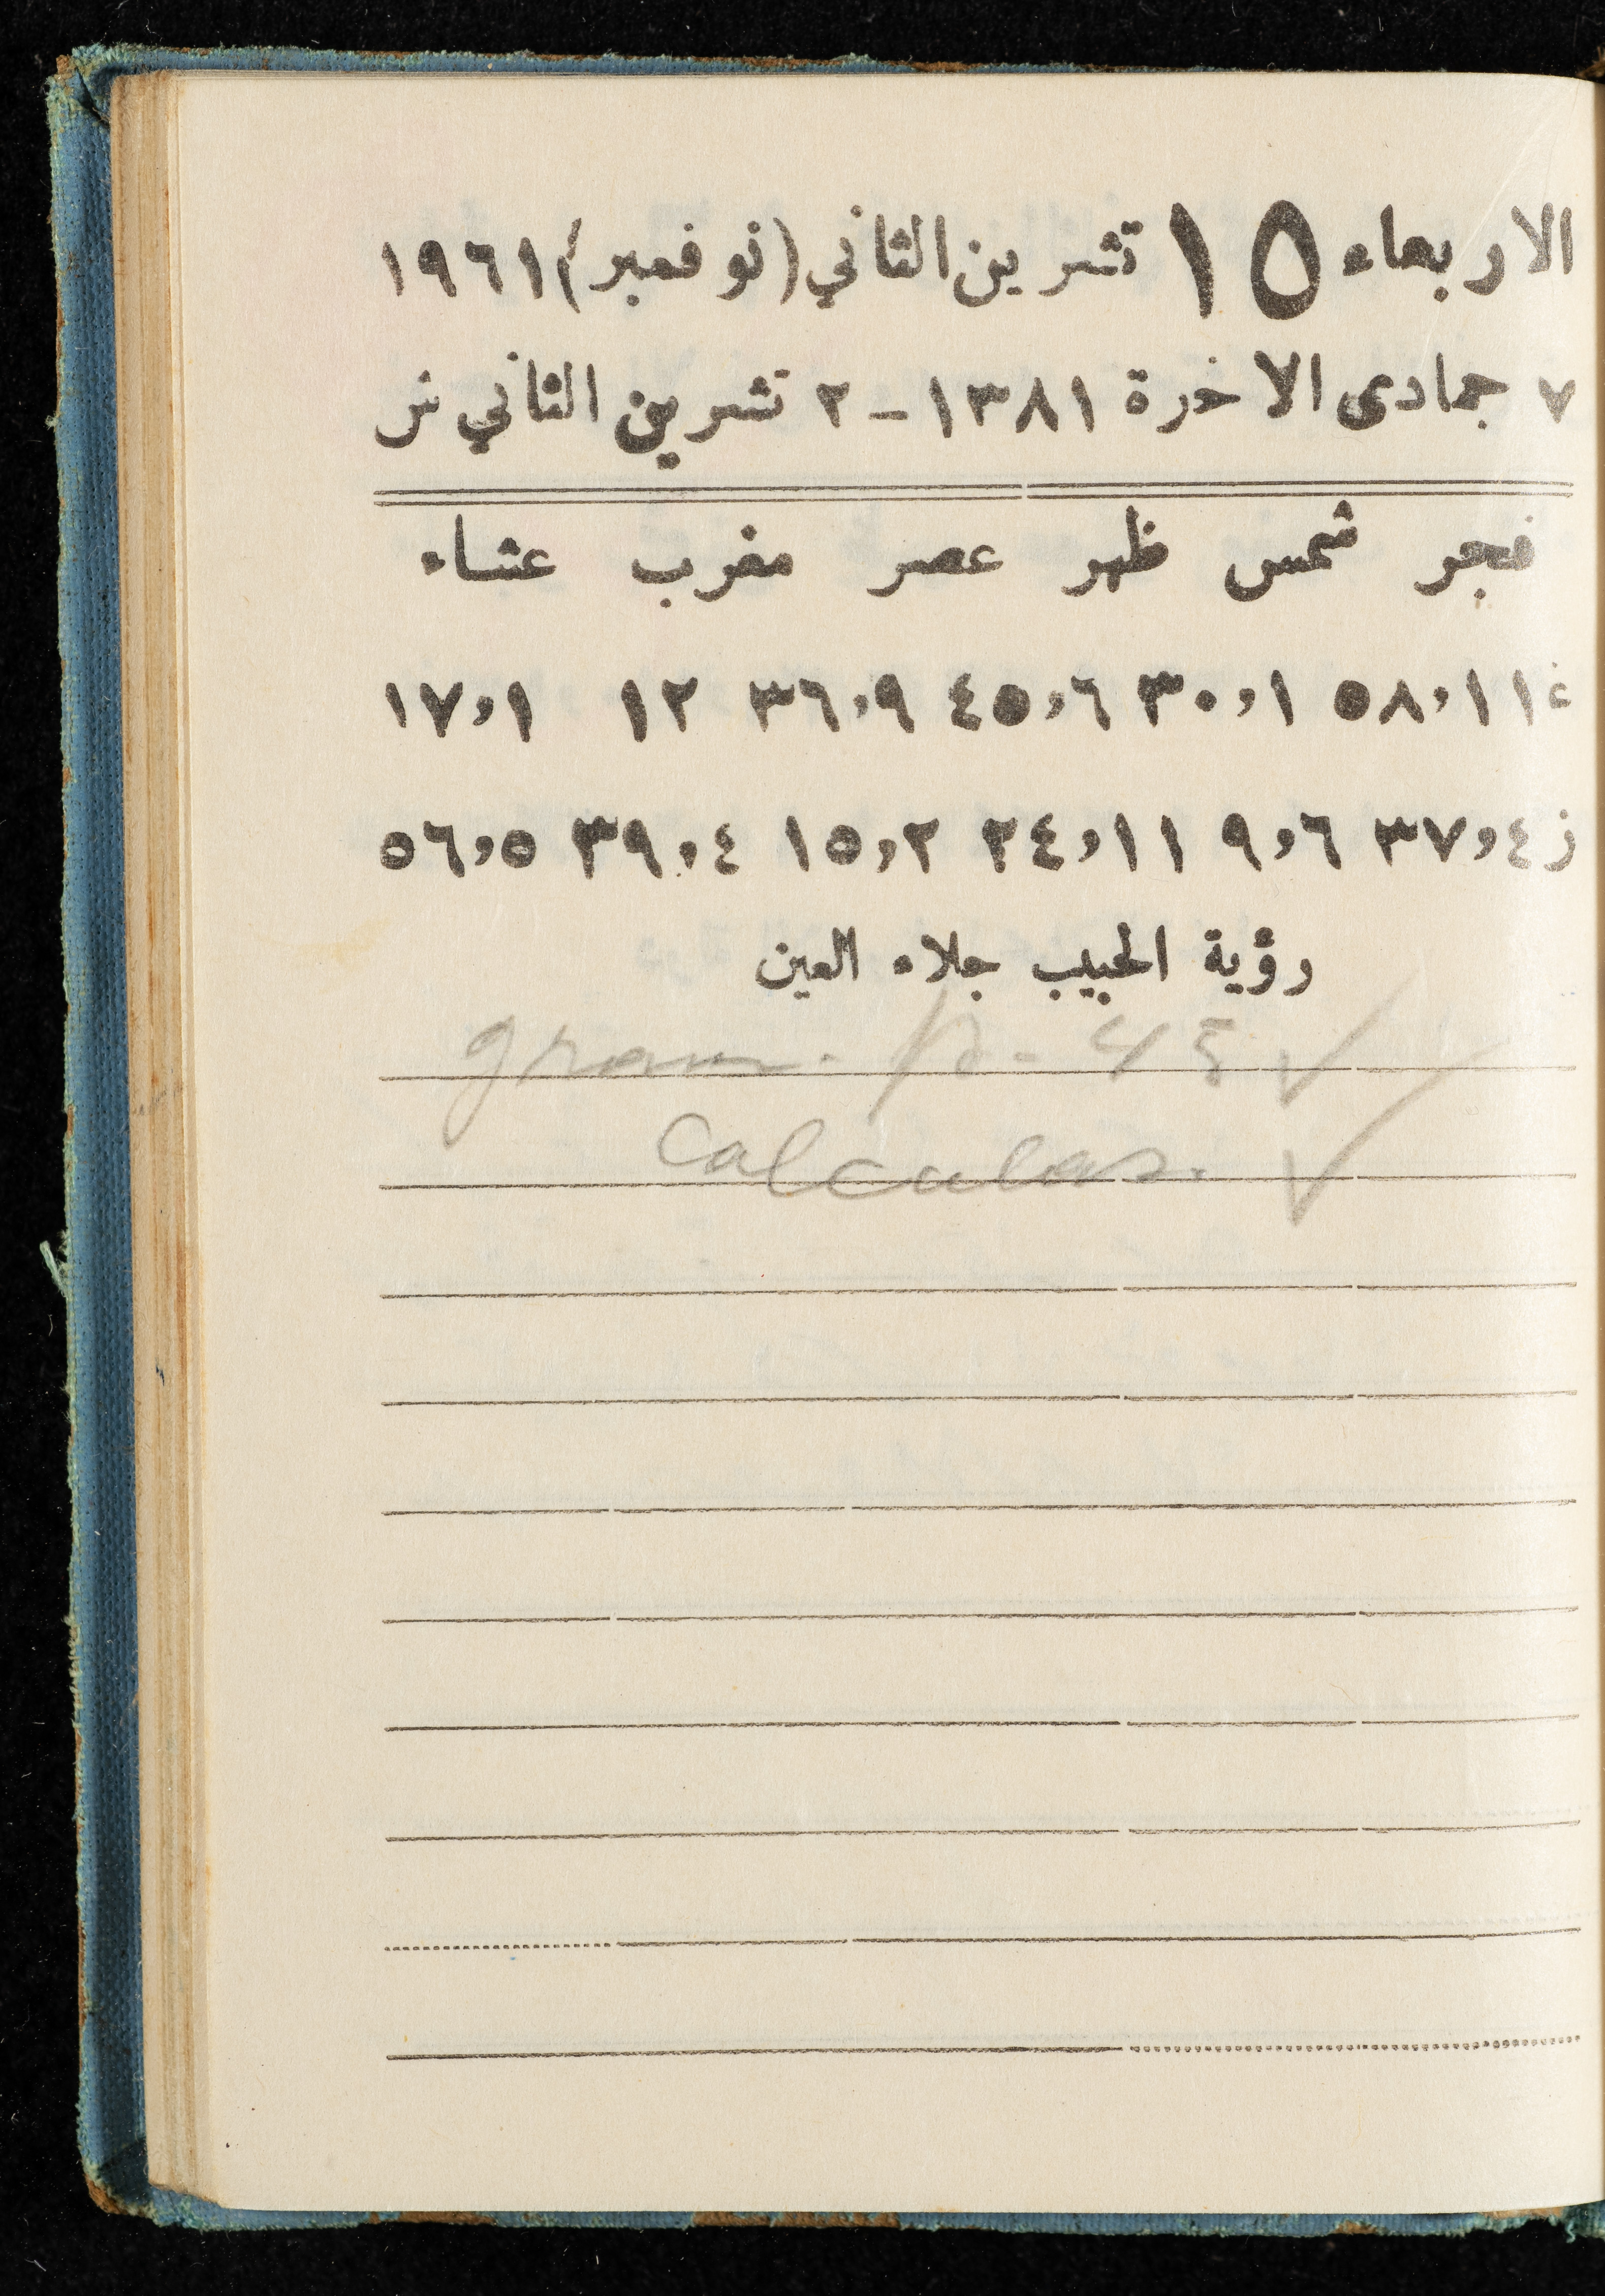 الاربعاء ١٥ تشرين الثاني (نوفمبر) ١٩٦١
٧ جمادى الاخرة ١٣٨١ - ٢ تشرين الثاني ش
فجر شمس ظهر عصر مغرب عشاء
غ ٥٨،١١ ٣٠،١ ٤٥،٦ ٣٦،٩ ١٢ ١٧،١
ز ٣٧،٤ ٩،٦ ٢٤،١١ ١٥،٢ ٣٩،٤ ٥٦،٥
رؤية الحبيب جلاء العين
gram. p - 45 ✓
Calculas. ✓